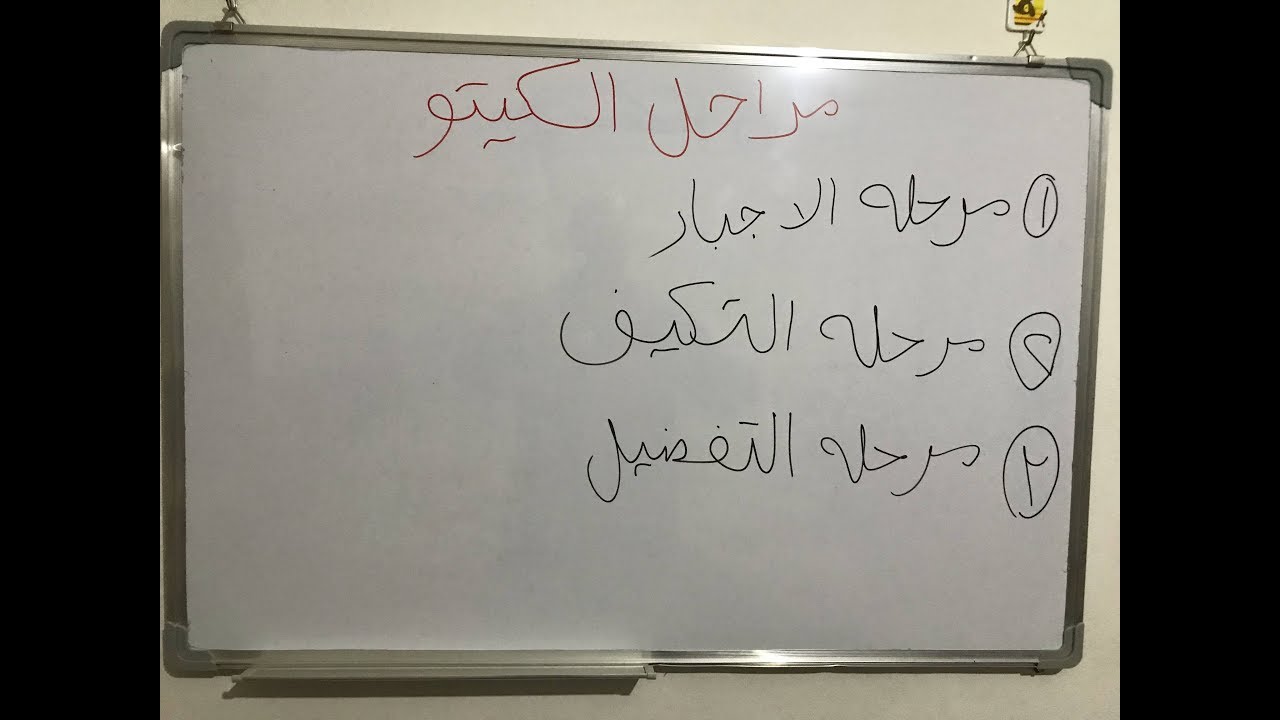 مراحل الكيتو
١ مرحله الاجبار
٢ مرحله التكيف
٣ مرحله التفضيل